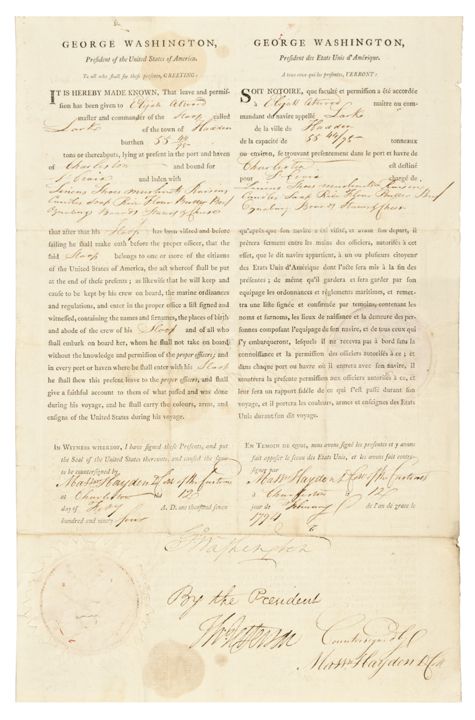 GEORGE WASHINGTON,
President of the United States of America.
To all who shall see these presents, GREETING:
IT IS HEREBY MADE KNOWN, That leave and permis-
sion has been given to Elijah Atwood
master and commander of the Sloop called
Lark of the town of Hadden
burthen 55 44/95
tons or thereabouts, lying at present in the port and haven
of Charleston and bound for
St Croix and laden with
Lemons Shoes merchantz Raisins
Candles Soap Rice Flour Butter Beef
Boards Staves & Cheese
that after that his Sloop has been visited and before
sailing he shall make oath before the proper officer, that the
said Sloop belongs to one or more of the citizens
of the United States of America, the act whereof shall be put
at the end of these presents; as likewise that he will keep and
cause to be kept by his crew on board, the marine ordinances
and regulations, and enter in the proper office a list signed and
witnessed, containing the names and surnames, the places of birth
and abode of the crew of his Sloop and of all who
shall embark on board her, whom he shall not take on board
without the knowledge and permission of the proper officers; and
in every port or haven where he shall enter with his Sloop
he shall shew this present leave to the proper officers, and shall
give a faithful account to them of what passed and was done
during his voyage, and he shall carry the colours, arms, and
ensigns of the United States during his voyage.
IN WITNESS WHEREOF, I have signed these Presents, and put
the Seal of the United States thereunto, and caused the same
to be countersigned by
of the Customs
at Charleston 12
day of Feby A. D. one thousand seven
hundred and ninety four
GEORGE WASHINGTON,
President des Etats Unis d'Amérique.
A tous ceux qui les presentes, VERRONT:
SOIT NOTOIRE, que faculté et permission a été accordée
à Elijah Atwood maitre ou com-
mandant du navire appellé Lark
de la ville de Hadden
de la capacité de 55 44/95 tonneaux
ou environ, se trouvant presentement dans le port et havre de
Charleston et destiné
pour St Croix chargé de
Lemons Shoes merchantz Raisins
Candles Soap Rice Flour Butter Beef
Boards Staves & Cheese
qu'après que son navire a été visité, et avant son depart, il
prêtera serment entre les mains des officiers, autorisés à cet
effet, que le dit navire appartient, à un ou plusieurs citoyens
des Etats Unis d'Amérique dont l'acte sera mis à la fin des
présentes; de même qu'il gardera et fera garder par son
equipage les ordonnances et règlements maritimes, et remet-
tra une liste signée et confirmée par temoins, contenant les
noms et surnoms, les lieux de naissance et la demeure des per-
sonnes composant l'equipage de son navire, et de tous ceux qui
s'y embarqueront, lesquels il ne recevra pas à bord sans la
connoissance et la permission des officiers autorisés à ce; et
dans chaque port ou havre où il entrera avec son navire, il
montrera la presente permission aux officiers autorisés à ce, et
leur fera un rapport fidèle de ce qui s'est passé durant son
voyage, et il portera les couleurs, armes et enseignes des Etats
Unis durant son dit voyage.
EN TEMOIN DE QUOI, nous avons signé les presentes et y avons
fait apposer le sceau des Etats Unis, et les avons fait contre-
signer par
of the Customs
à Charleston 12
jour de February de l'an de grace le
1794
G Washington
By the President
Th Jefferson
Countersigned